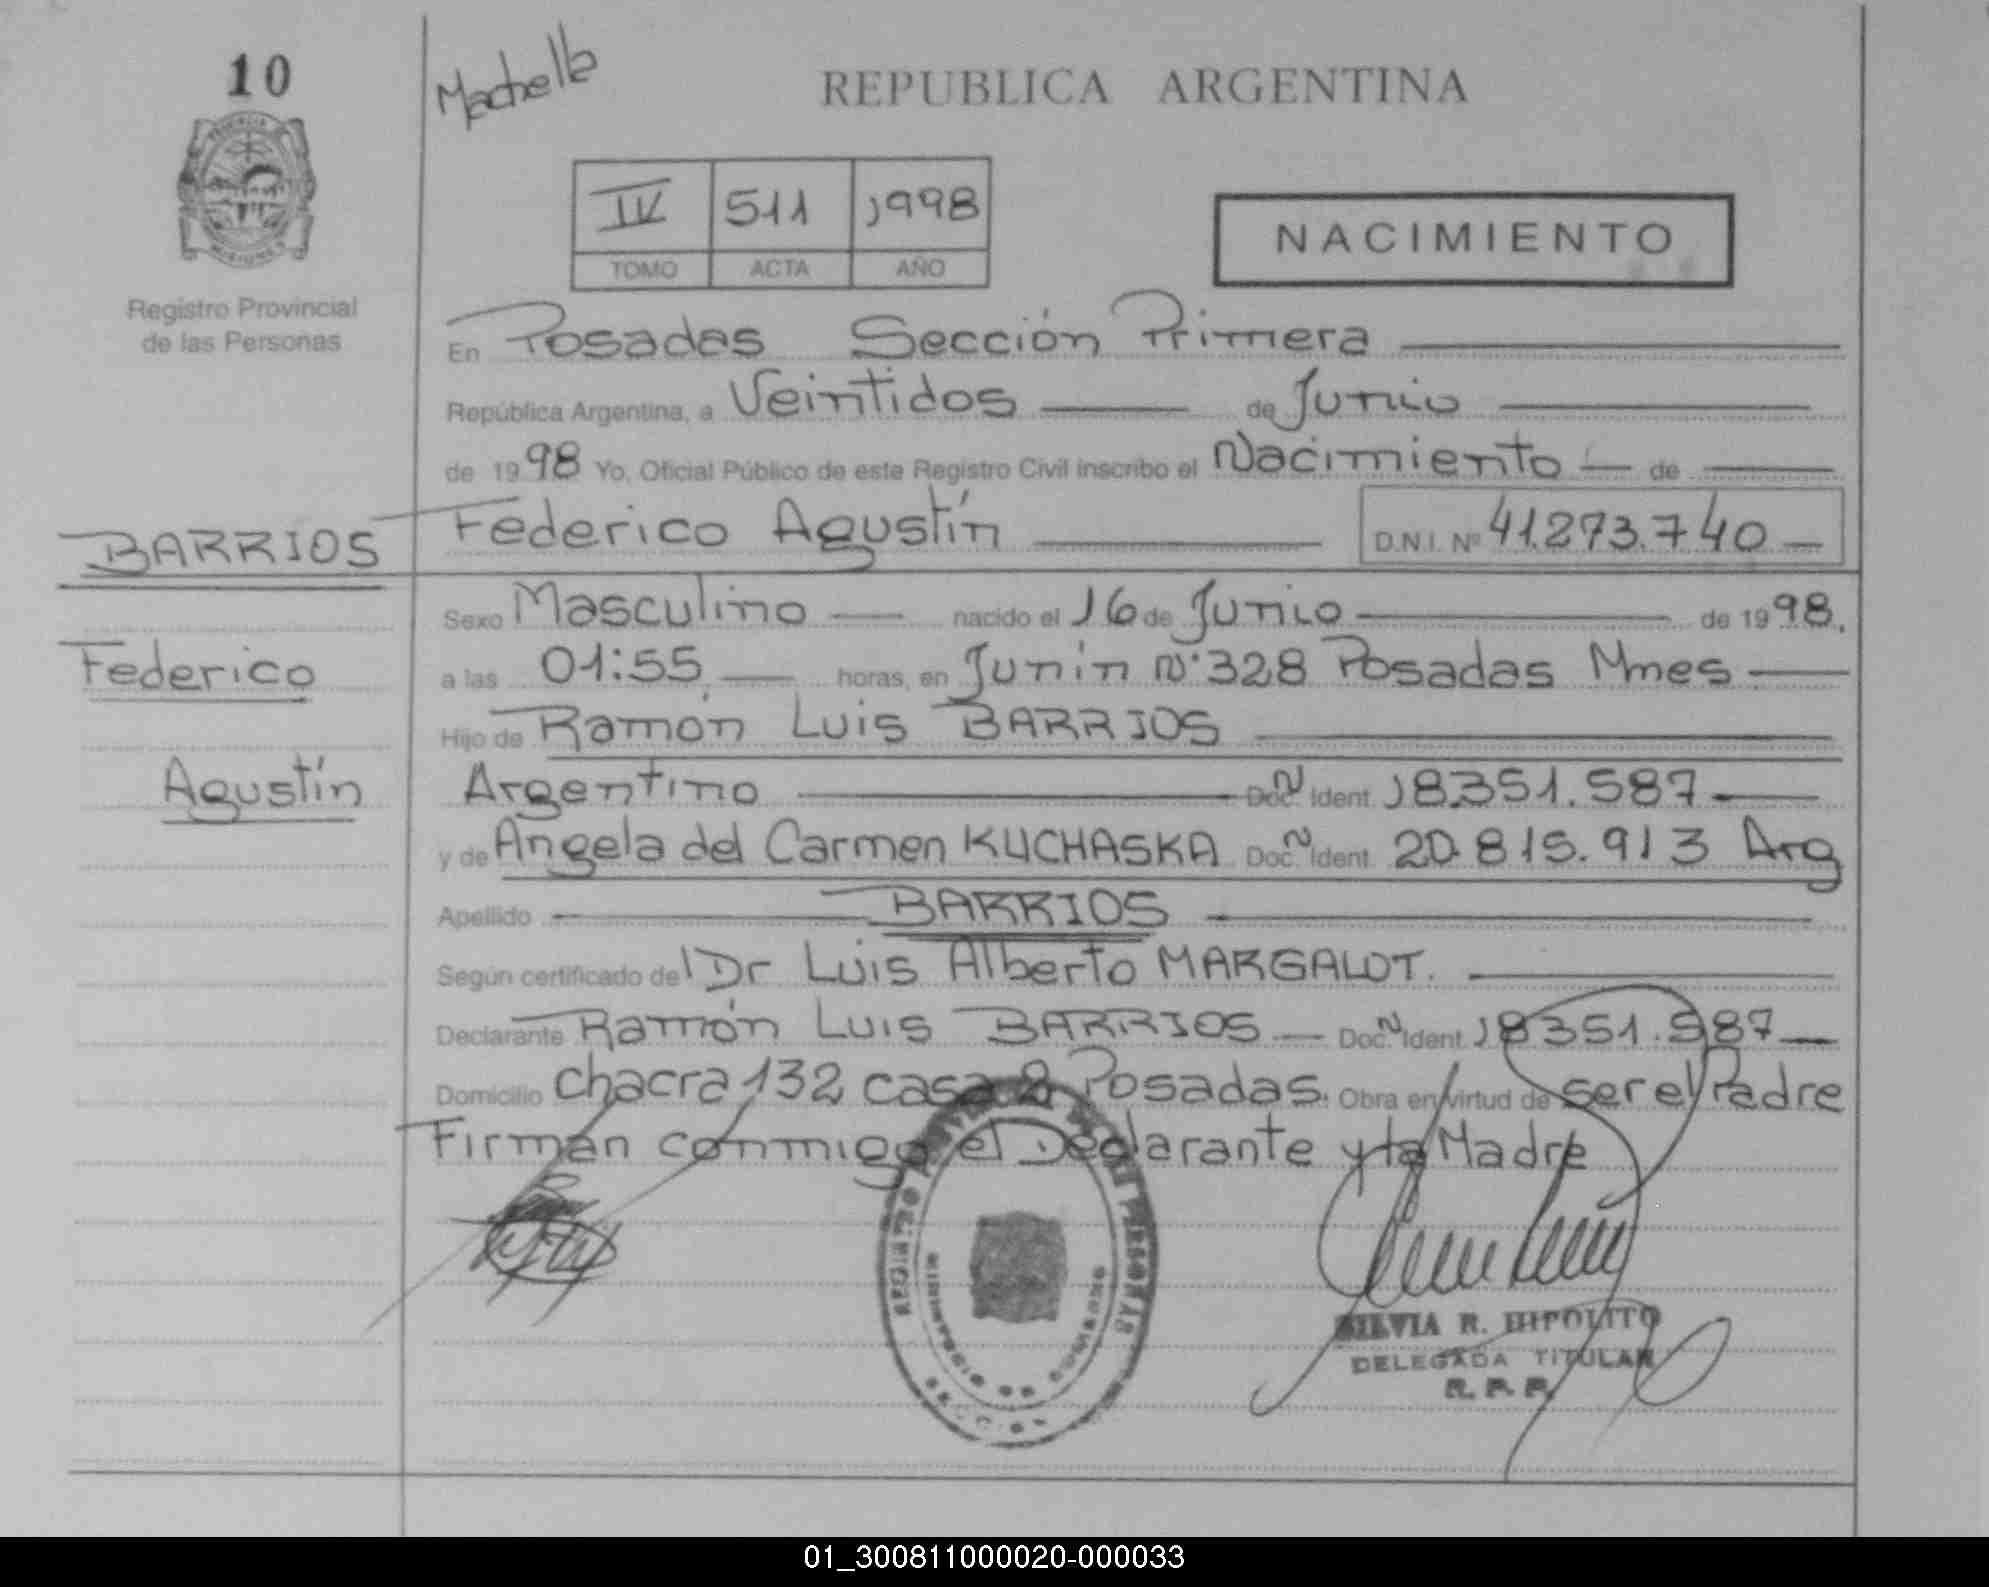 10
Machella
REPUBLICA ARGENTINA
IV 511 1998
TOMO ACTA AÑO
NACIMIENTO
Registro Provincial
de las Personas
En Posadas Sección Primera
República Argentina, a Veintidos de Junio
de 1998 Yo, Oficial Público de este Registro Civil inscribo el Nacimiento de
BARRIOS Federico Agustín D.N.I. Nº 41.273.740
Sexo Masculino nacido el 16 de Junio de 1998.
Federico
a las 01:55 horas, en Junín Nº 328 Posadas Mnes
Hijo de Ramón Luis BARRIOS
Agustín
Argentino Doc. N Ident. 18.351.587
y de Angela del Carmen KUCHASKA Doc. N Ident. 20.815.913 Arg
Apellido BARRIOS
Según certificado del Dr Luis Alberto MARGALOT.
Declarante Ramón Luis BARRIOS Doc. N Ident. 18351.587
Domicilio chacra 132 casa 2 Posadas. Obra en virtud de ser el Padre
Firman conmigo el Declarante y la Madre
REGISTRO DE LAS PERSONAS
MINISTERIO DE GOBIERNO
SILVIA R. HIPOLITO
DELEGADA TITULAR
R. P. P.
01_300811000020-000033